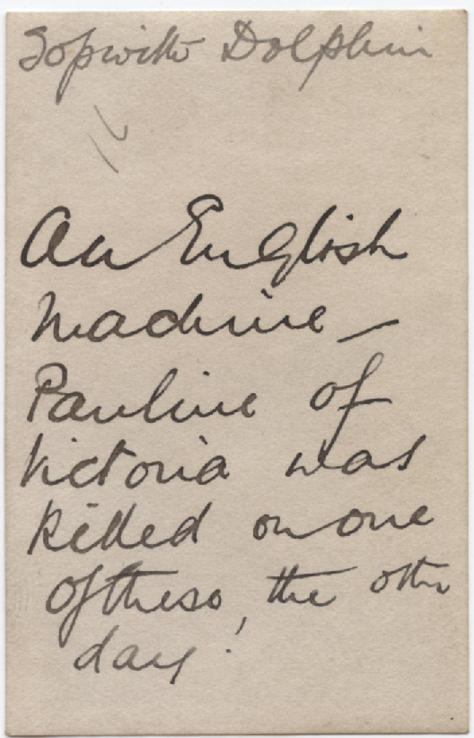 Sopwith Dolphin
An English
Machine —
Pauline of
Victoria was
killed on one
of these, the other
day!